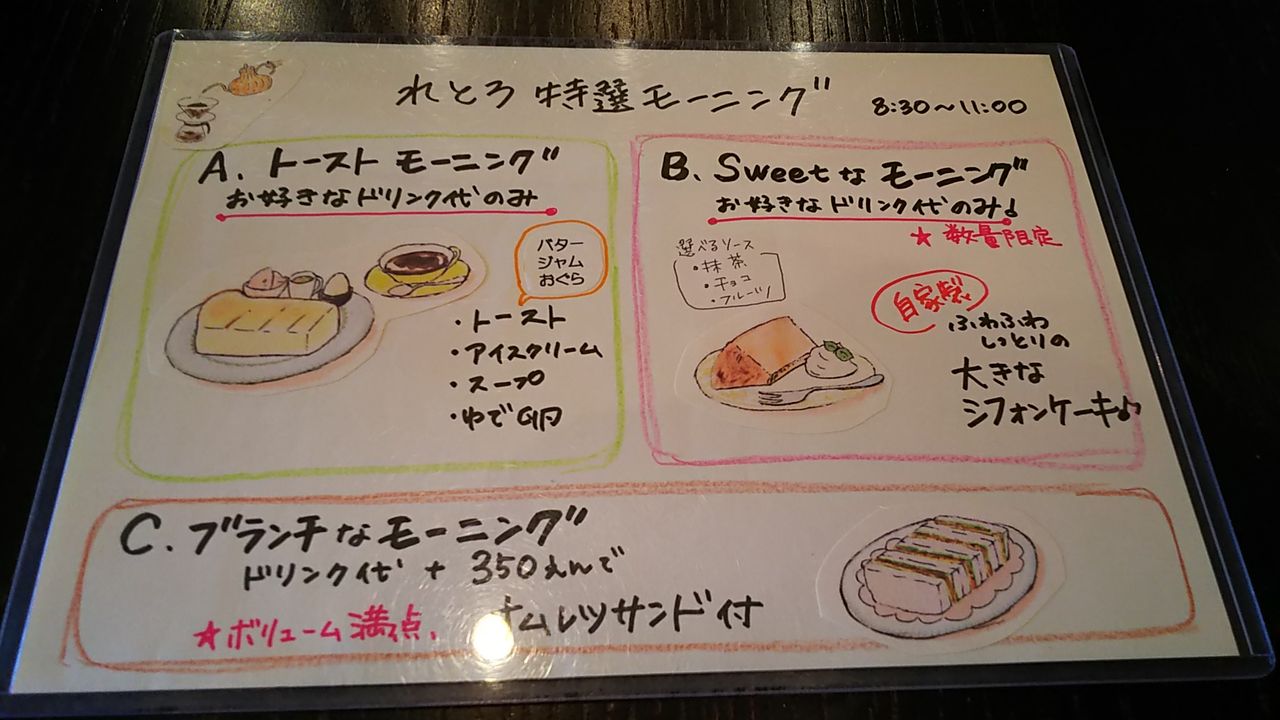 れとろ 特選モーニング 8:30～11:00
A. トースト モーニング
お好きなドリンク代のみ
バター
ジャム
おぐら
・トースト
・アイスクリーム
・スープ
・ゆで卵
B、Sweetな モーニング
お好きなドリンク代のみ♪
★ 数量限定
選べるソース
・抹茶
・チョコ
・フルーツ
自家製
ふわふわ
しっとりの
大きな
シフォンケーキ♪
C. ブランチなモーニング
ドリンク代 + 350えんで
★ボリューム満点、 オムレツサンド付